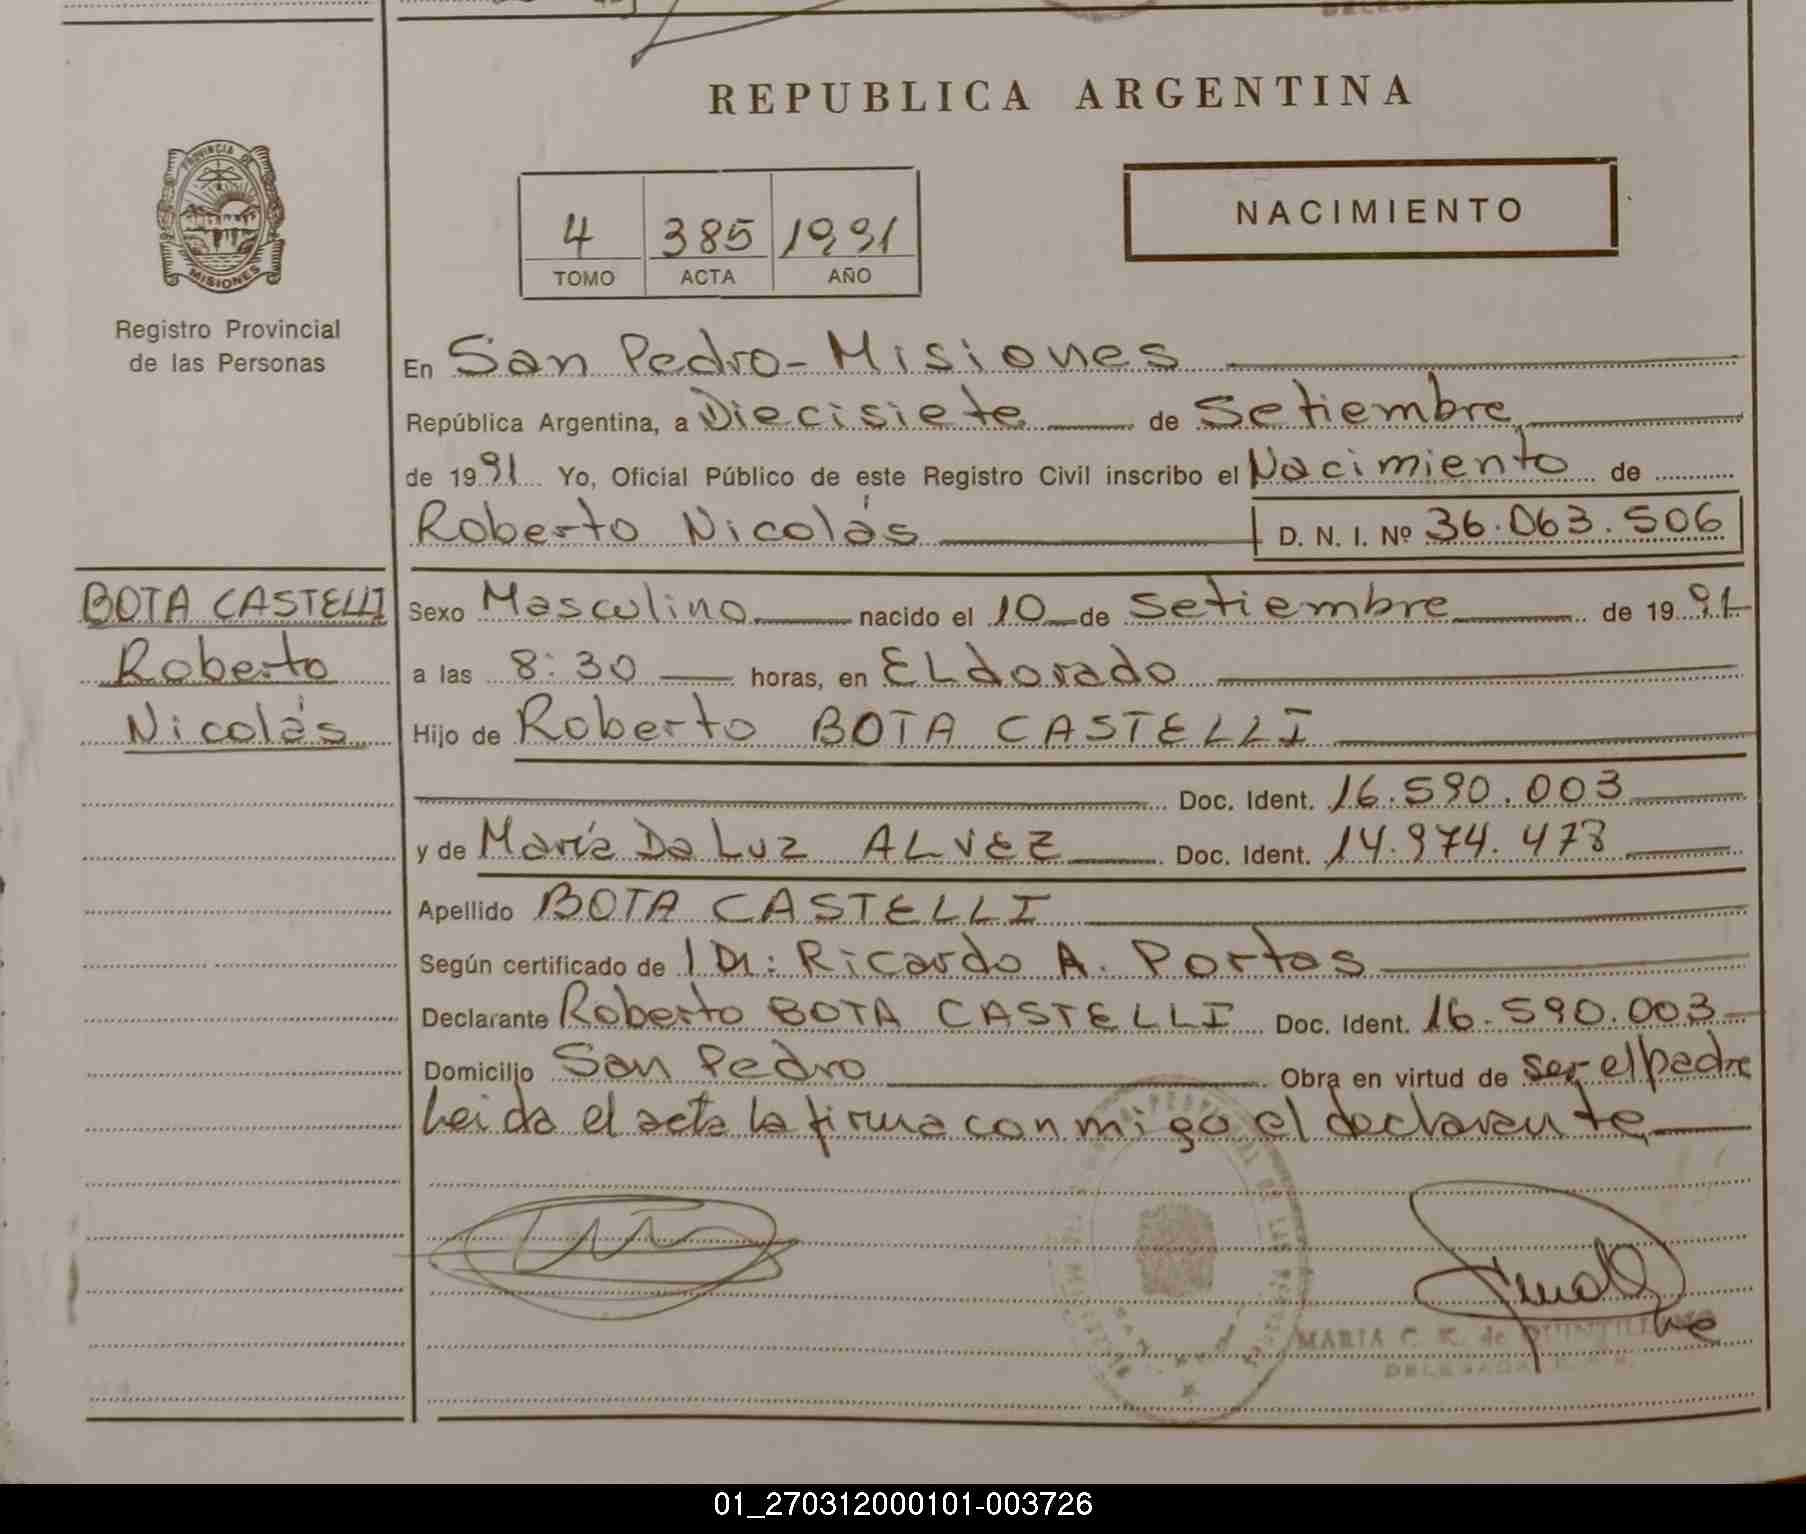 REPUBLICA ARGENTINA
PROVINCIA DE
MISIONES
Registro Provincial
de las Personas
4 385 1991
TOMO ACTA AÑO
NACIMIENTO
En San Pedro - Misiones
República Argentina, a Diecisiete de Setiembre
de 1991 Yo, Oficial Público de este Registro Civil inscribo el Nacimiento de
Roberto Nicolás D. N. I. Nº 36.063.506
BOTA CASTELLI
Roberto
Nicolás
Sexo Masculino nacido el 10 de Setiembre de 1991
a las 8:30 horas, en ELdorado
Hijo de Roberto BOTA CASTELLI
Doc. Ident. 16.590.003
y de María Da Luz ALVEZ Doc. Ident. 14.974.478
Apellido BOTA CASTELLI
Según certificado de 1 Dr: Ricardo A. Portas
Declarante Roberto BOTA CASTELLI Doc. Ident. 16.590.003
Domicilio San Pedro Obra en virtud de ser el padre
Leida el acta la firma conmigo el declarante
MARIA C. K. de
DELEGADA
01_270312000101-003726